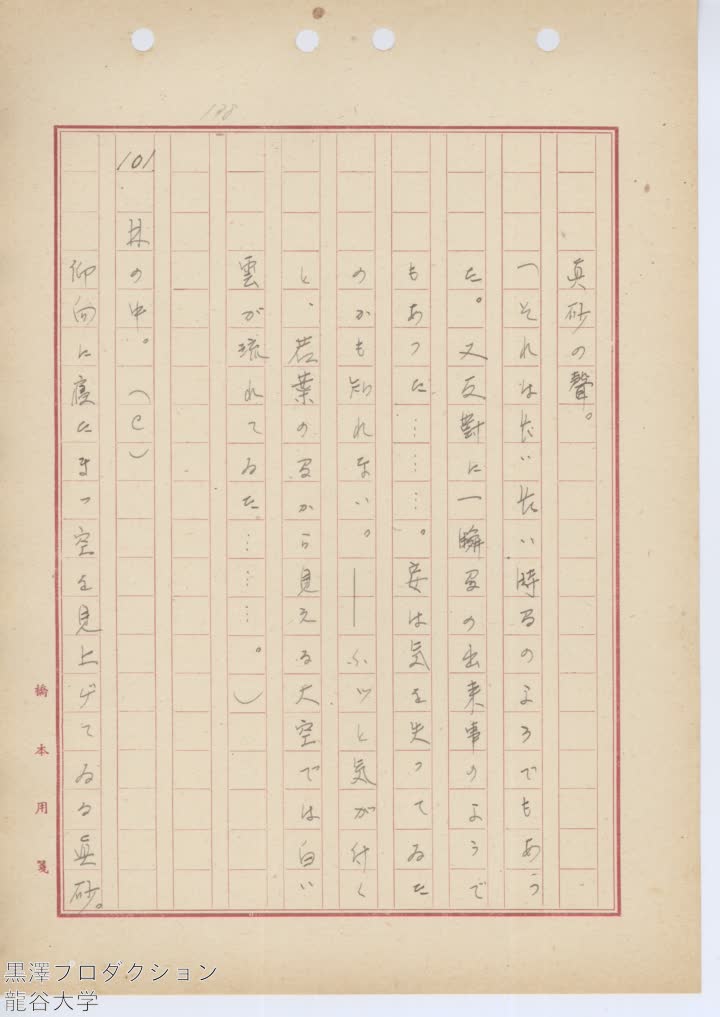 138
真砂の聲。
(それはだいたい時間のようでもあっ
た。又反對に一瞬間の出来事のようで
もあった………。妾は気を失ってゐた
のかも知れない。――ふッと気が付く
と、若葉の間から見える大空では白い
雲が流れてゐた………。)
101 林の中。(C)
仰向に寝たまゝ空を見上げてゐる眞砂。
橋本用箋
黒澤プロダクション
龍谷大学